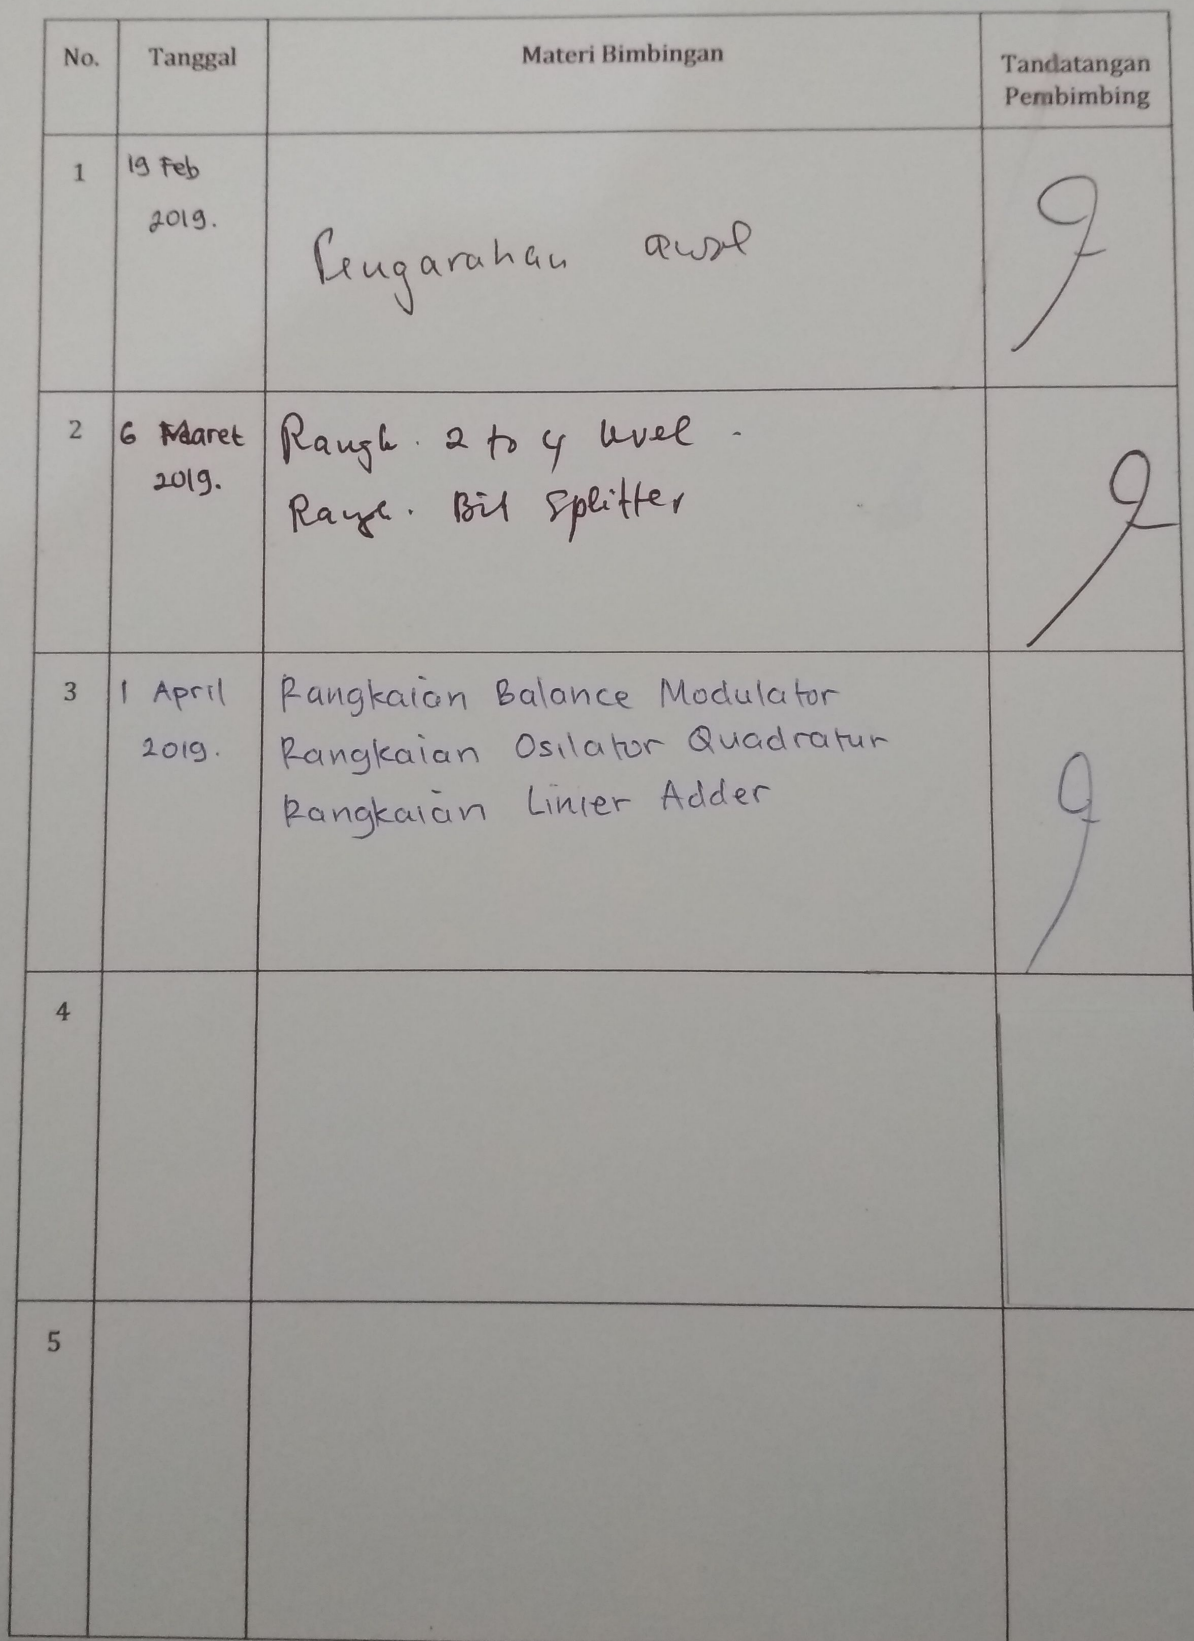 No. Tanggal Materi Bimbingan Tandatangan
Pembimbing
1 19 Feb
2019.
Pengarahan awal
2 6 Maret Rangk. 2 to 4 level.
2019. Rangk. Bit Splitter
3 1 April Rangkaian Balance Modulator
2019. Rangkaian Osilator Quadratur
Rangkaian Linier Adder
4
5